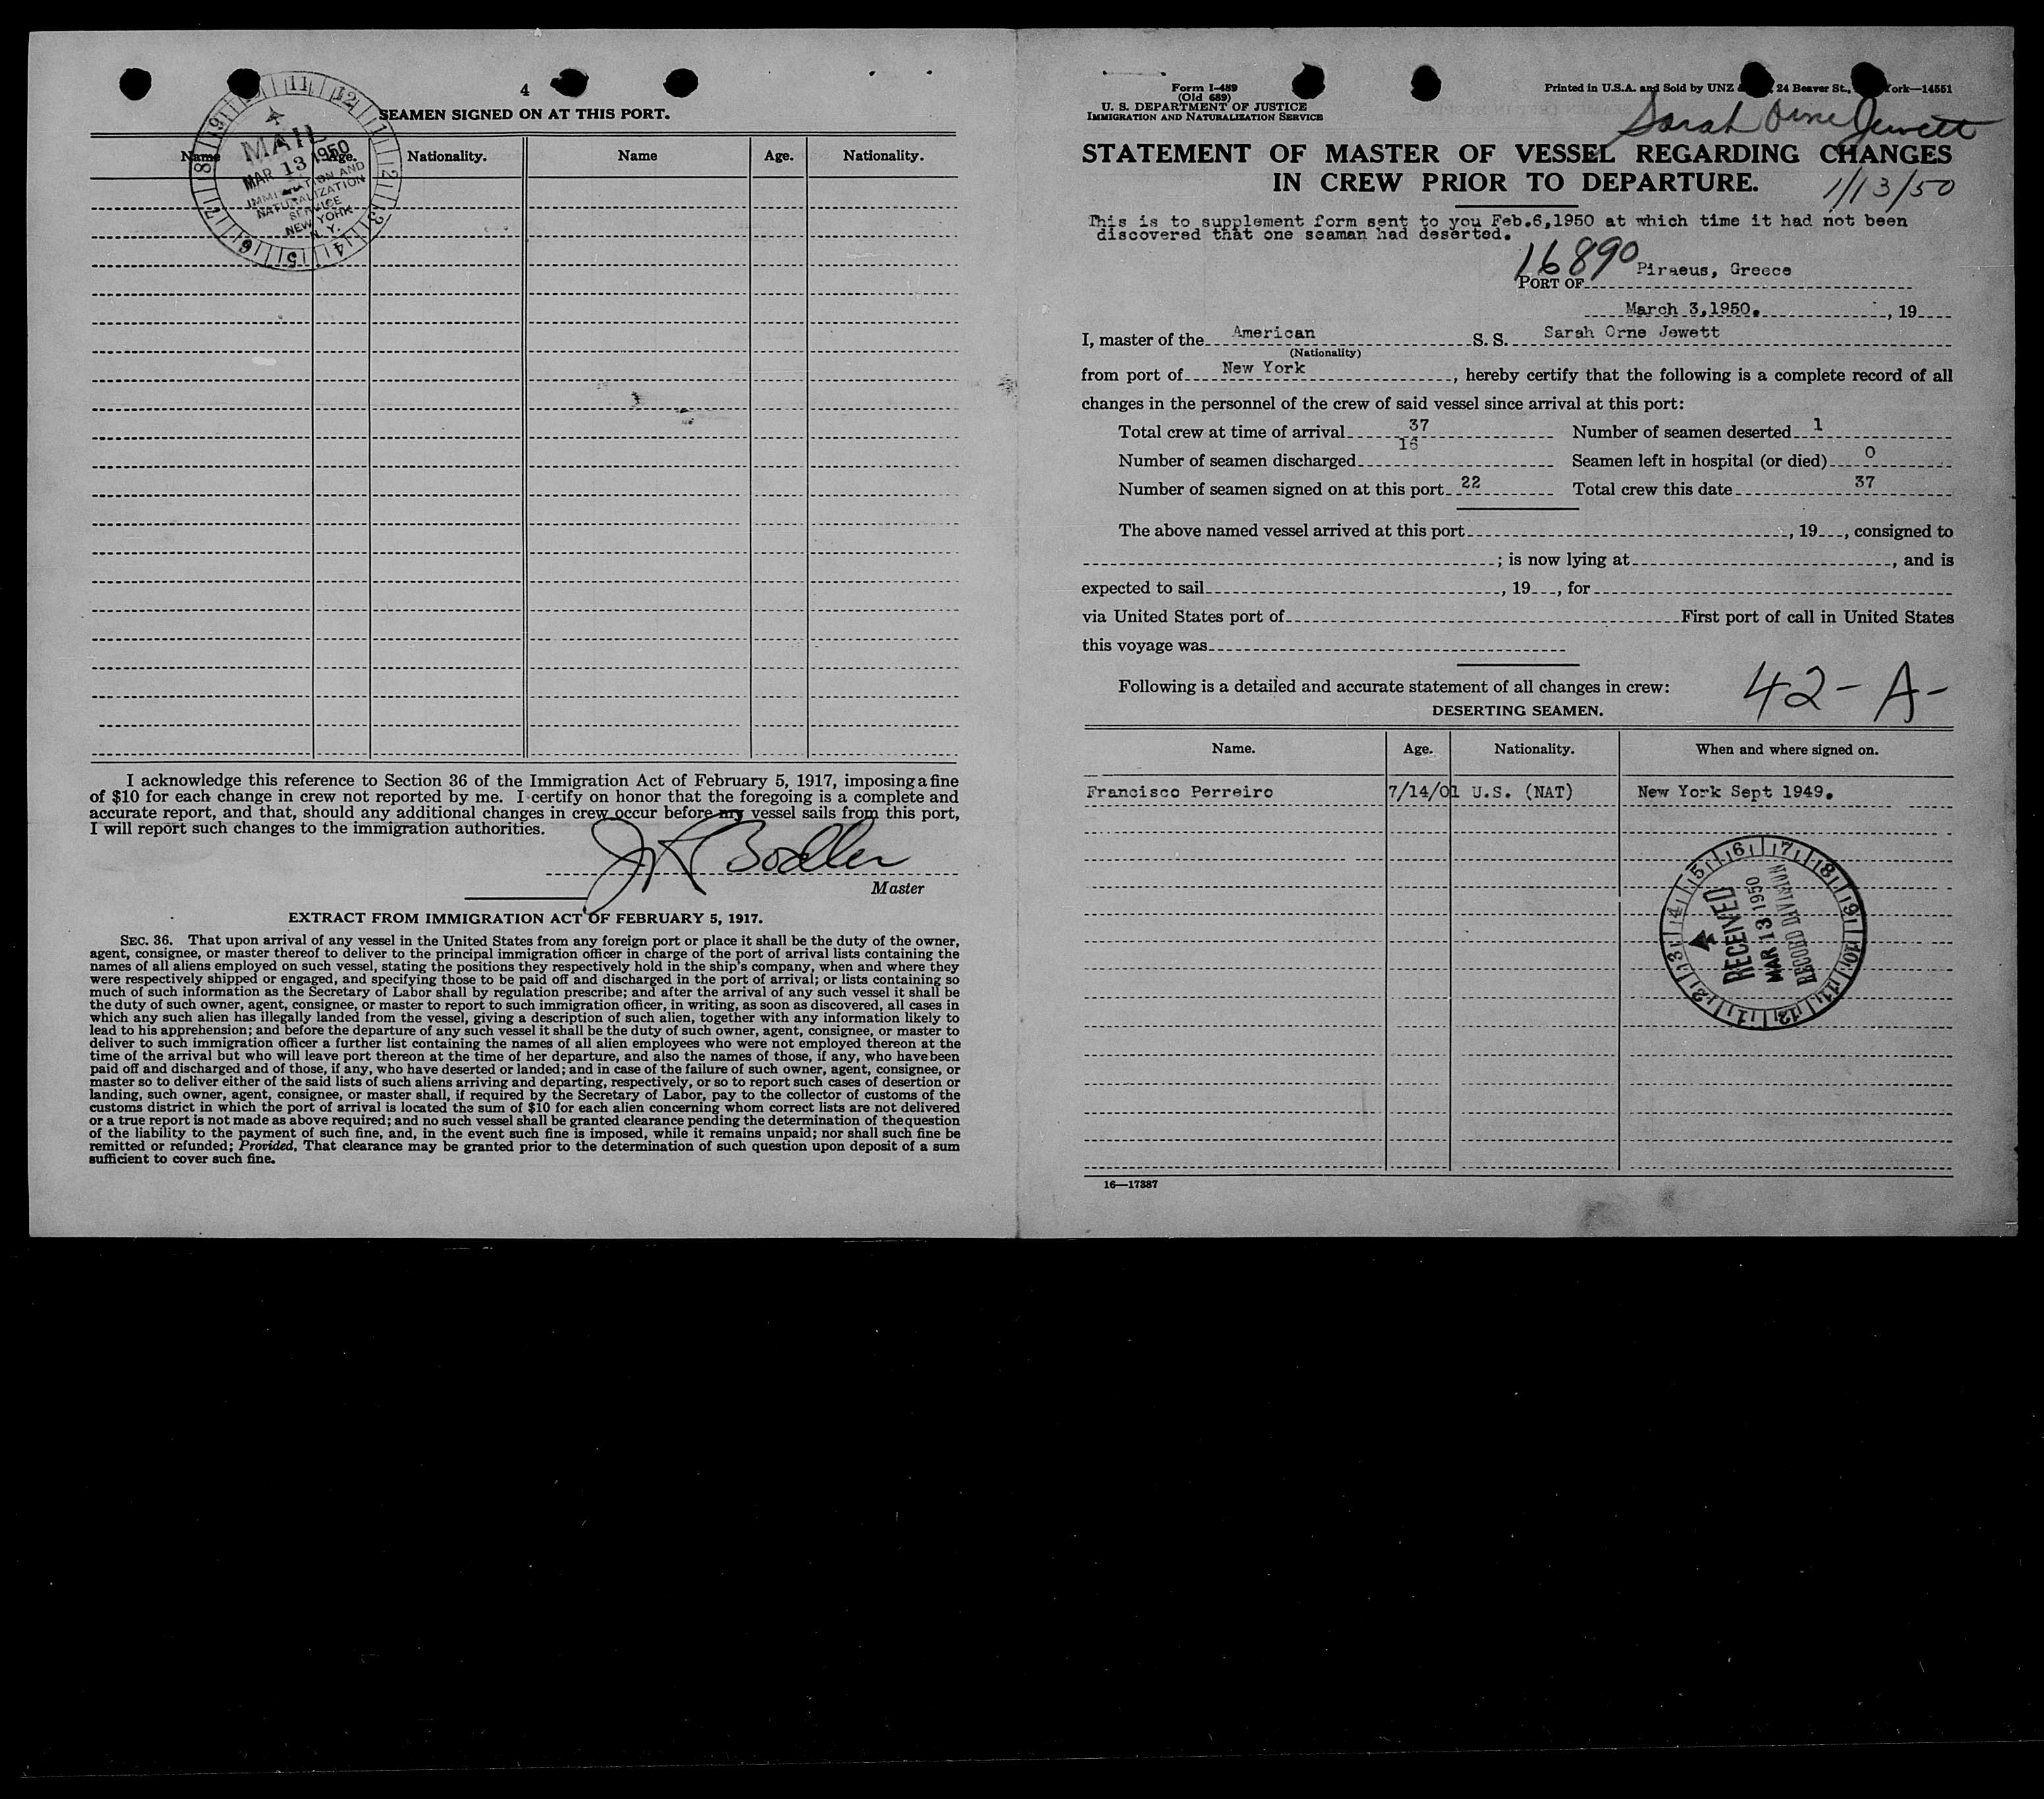 4
SEAMEN SIGNED ON AT THIS PORT.
Name Age. Nationality. Name Age. Nationality.
MAIL
MAR 13 1950
IMMIGRATION AND
NATURALIZATION
SERVICE
NEW YORK
N. Y.
I acknowledge this reference to Section 36 of the Immigration Act of February 5, 1917, imposing a fine
of $10 for each change in crew not reported by me. I certify on honor that the foregoing is a complete and
accurate report, and that, should any additional changes in crew occur before my vessel sails from this port,
I will report such changes to the immigration authorities.
Master
EXTRACT FROM IMMIGRATION ACT OF FEBRUARY 5, 1917.
SEC. 36. That upon arrival of any vessel in the United States from any foreign port or place it shall be the duty of the owner,
agent, consignee, or master thereof to deliver to the principal immigration officer in charge of the port of arrival lists containing the
names of all aliens employed on such vessel, stating the positions they respectively hold in the ship's company, when and where they
were respectively shipped or engaged, and specifying those to be paid off and discharged in the port of arrival; or lists containing so
much of such information as the Secretary of Labor shall by regulation prescribe; and after the arrival of any such vessel it shall be
the duty of such owner, agent, consignee, or master to report to such immigration officer, in writing, as soon as discovered, all cases in
which any such alien has illegally landed from the vessel, giving a description of such alien, together with any information likely to
lead to his apprehension; and before the departure of any such vessel it shall be the duty of such owner, agent, consignee, or master to
deliver to such immigration officer a further list containing the names of all alien employees who were not employed thereon at the
time of the arrival but who will leave port thereon at the time of her departure, and also the names of those, if any, who have been
paid off and discharged and of those, if any, who have deserted or landed; and in case of the failure of such owner, agent, consignee, or
master so to deliver either of the said lists of such aliens arriving and departing, respectively, or so to report such cases of desertion or
landing, such owner, agent, consignee, or master shall, if required by the Secretary of Labor, pay to the collector of customs of the
customs district in which the port of arrival is located the sum of $10 for each alien concerning whom correct lists are not delivered
or a true report is not made as above required; and no such vessel shall be granted clearance pending the determination of the question
of the liability to the payment of such fine, and, in the event such fine is imposed, while it remains unpaid; nor shall such fine be
remitted or refunded; Provided, That clearance may be granted prior to the determination of such question upon deposit of a sum
sufficient to cover such fine.
Form I-489
(Old 689)
U. S. DEPARTMENT OF JUSTICE
IMMIGRATION AND NATURALIZATION SERVICE
Printed in U.S.A. and Sold by UNZ 24 Beaver St., York—14551
Sarah Orne Jewett
STATEMENT OF MASTER OF VESSEL REGARDING CHANGES
IN CREW PRIOR TO DEPARTURE.
1/13/50
This is to supplement form sent to you Feb.6,1950 at which time it had not been
discovered that one seaman had deserted.
16890
PORT OF Piraeus, Greece
March 3,1950. , 19
I, master of the American S. S. Sarah Orne Jewett
(Nationality)
from port of New York , hereby certify that the following is a complete record of all
changes in the personnel of the crew of said vessel since arrival at this port:
Total crew at time of arrival 37 Number of seamen deserted 1
Number of seamen discharged 16 Seamen left in hospital (or died) 0
Number of seamen signed on at this port 22 Total crew this date 37
The above named vessel arrived at this port , 19 , consigned to
; is now lying at , and is
expected to sail , 19 , for
via United States port of First port of call in United States
this voyage was
Following is a detailed and accurate statement of all changes in crew:
42-A-
DESERTING SEAMEN.
Name. Age. Nationality. When and where signed on.
Francisco Perreiro 7/14/01 U.S. (NAT) New York Sept 1949.
RECEIVED
MAR 13 1950
RECORD DIVISION
16—17387